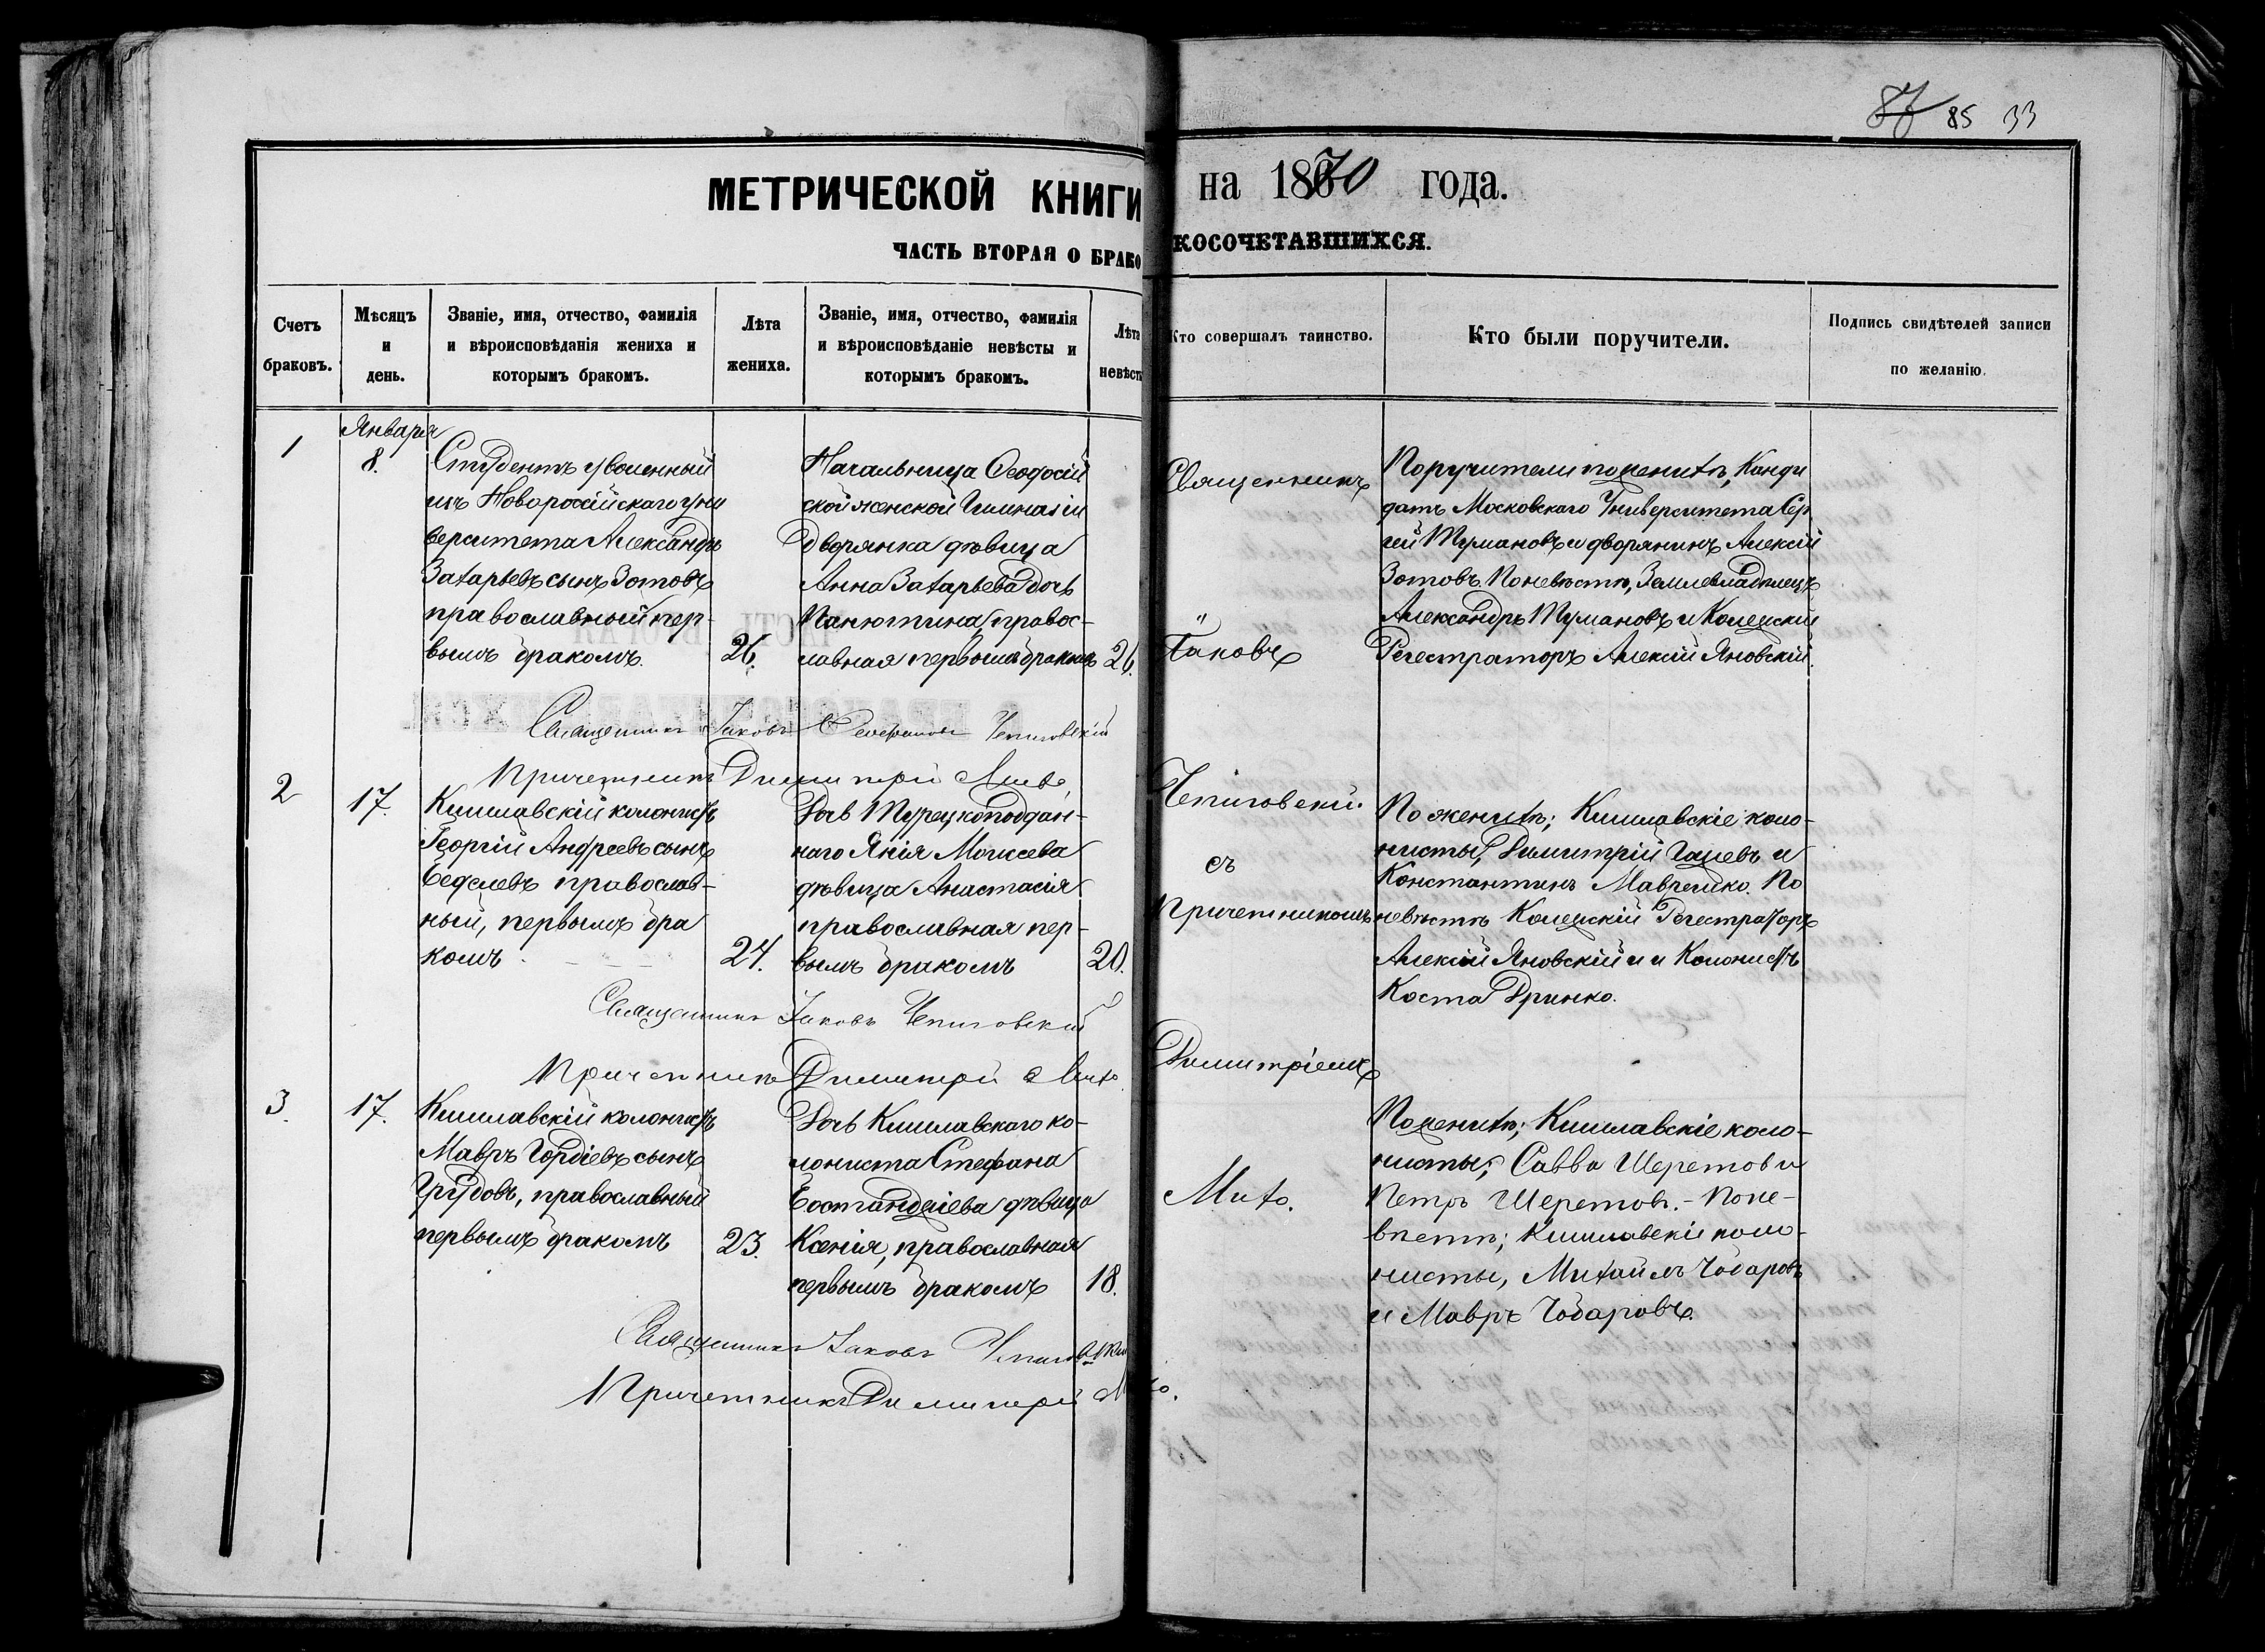 87 85 33
МЕТРИЧЕСКОЙ КНИГИ на 1870 года.
ЧАСТЬ ВТОРАЯ О БРАКОСОЧЕТАВШИХСЯ.
Счетъ браковъ.
Мѣсяцъ и день.
Званіе, имя, отчество, фамилія и вѣроисповѣданія жениха и которымъ бракомъ.
Лѣта жениха.
Званіе, имя, отчество, фамилія и вѣроисповѣданіе невѣсты и которымъ бракомъ.
Лѣта невѣст
Кто совершалъ таинство.
Кто были поручители.
Подпись свидѣтелей записи по желанію.
1
Января
8.
Студентъ уволенный
изъ Новороссійскаго уни
верситета Александръ
Захарьевъ сынъ Зотовъ
православный пер-
вымъ бракомъ.
26.
Начальница Ѳеодосій
ской женской Гимназіи
дворянка дѣвица
Анна Захарьева дочь
Панютина, правос-
лавная первымъ бракомъ
26.
Священникъ
Іаковъ
Поручители по женихѣ, Канди
датъ Московскаго Университета Сер
гей Тумановъ и дворянинъ Алексѣй
Зотовъ. По невѣстѣ, Землевладѣлецъ
Александръ Тумановъ и Колежскій
Регестраторъ Алексій Яновскій.
Священникъ Іаковъ Чепиговскій
Причетникъ Димитрій Михо
2
17.
Кишлавскій колонистъ
Георгій Андреевъ сынъ
православ-
ный, первымъ бра
комъ
24.
Дочь Турецкоподдан-
наго Янія Моисеева
дѣвица Анастасія
православная пер-
вымъ бракомъ
20.
Чепиговскій
съ
Причетникомъ
По женихѣ; Кишлавскіе коло-
нисты, Димитрій и
Константинъ Мавренко. По
невѣстѣ Колежскій Регестраторъ
Алексій Яновскій и и Колонистъ
Коста Дринко.
Священникъ Іаковъ Чепиговскій
Причетникъ Димитрій Михо
Димитріемъ
3.
17.
Кишлавскій колонистъ
Мавръ Гордіевъ сынъ
Грудовъ, православный
первымъ бракомъ
23.
Дочь Кишлавскаго ко-
лониста Стефана
Бостанджіева дѣвица
Ксенія, православная
первымъ бракомъ
18.
Михо.
По женихѣ; Кишлавскіе коло-
нисты; Савва Шеретов и
Петръ Шеретов. - По не-
вѣстѣ; Кишлавскіе коло-
нисты, Михаилъ Чобаровъ
и Мавръ Чобаровъ.
Священникъ Іаковъ Чепиговскій
Причетникъ Димитрій Михо.